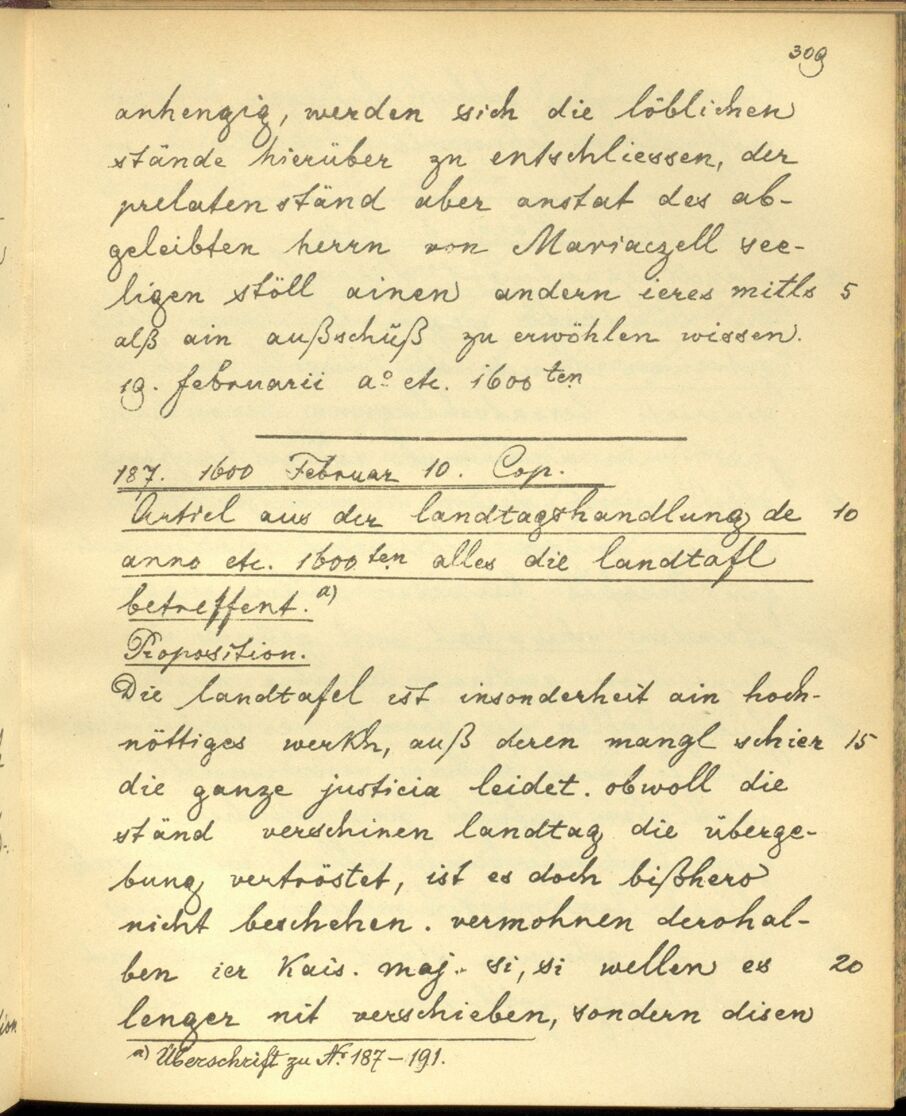 309
anhengig, werden sich die löblichen
stände hierüber zu entschliessen, der
prelaten ständ aber anstat des ab-
geleibten herrn von Mariaczell see-
ligen stöll ainen andern ieres mitls 5
alß ain außschuß zu erwöhlen wissen.
19. februarii a° etc. 1600 ten
187. 1600 Februar 10. Cop.
Articl aus der landtagshandlung de 10
anno etc. 1600 ten alles die landtafl
betreffent. a)
Proposition.
Die landtafel ist insonderheit ain hoch-
nöttiges werkh, auß deren mangl schier 15
die ganze justicia leidet. obwoll die
ständ verschinen landtag die überge-
bung vertröstet, ist es doch bißhero
nicht beschehen. vermohnen derohal-
ben ier kais. maj. si, si wellen es 20
lenger nit verschieben, sondern disen
a) Überschrift zu Nr. 187-191.